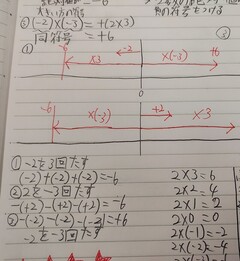 (-2)×(-3)=+(2×3)
同符号 =+6
③
①
-6 -2 +6
×3 ×(-3)
0
-6 +2
×(-3) ×3
①-2を3回たす
(-2)+(-2)+(-2)=-6
②2を-3回たす
-(+2)-(+2)-(+2)=-6
③-(-2)-(-2)-(-2)=+6
-2を-3回たす
2×3=6
2×2=4
2×1=2
2×0=0
2×(-1)=-2
2×(-2)=-4